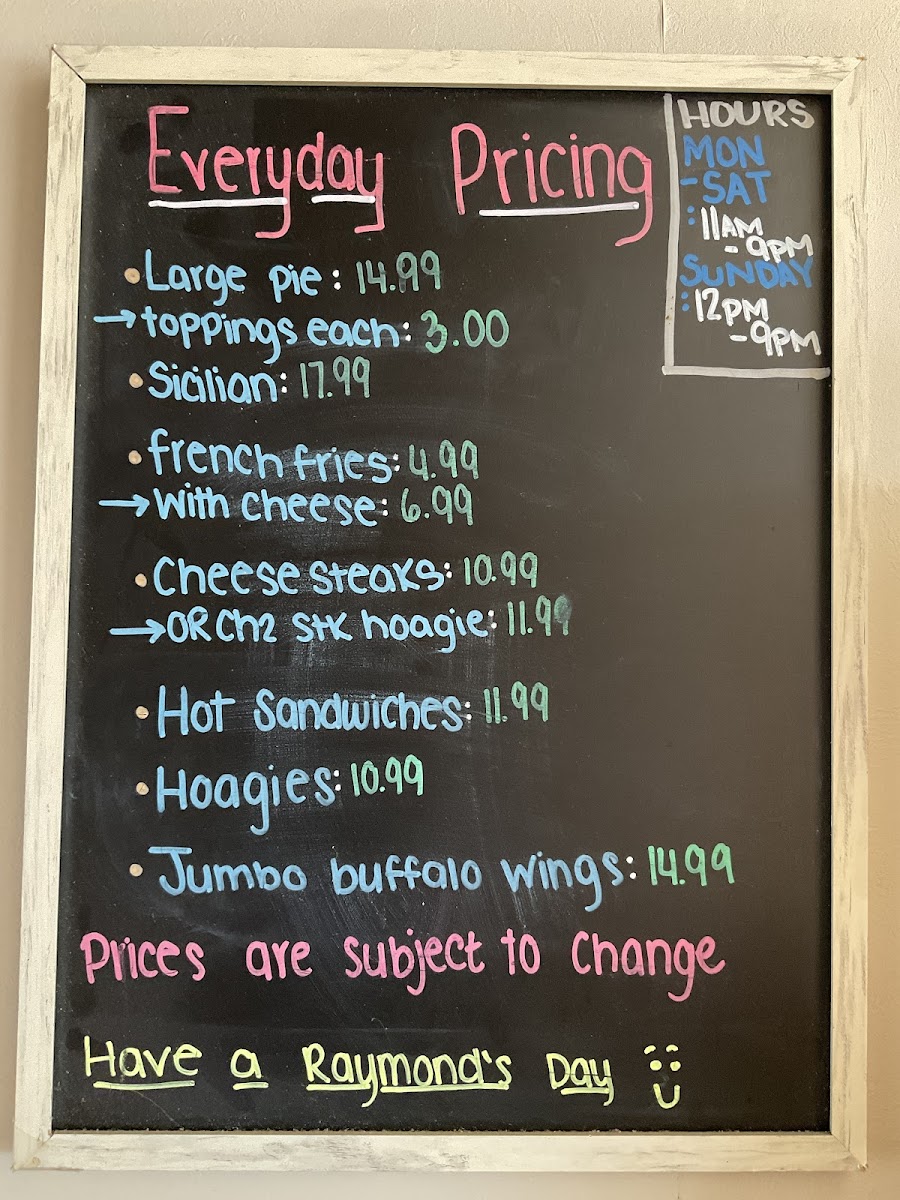 Everyday Pricing
• Large pie: 14.99
→ toppings each: 3.00
• Sicilian: 17.99
• french fries: 4.99
→ With cheese: 6.99
• Cheese steaks: 10.99
→ OR Chz stk hoagie: 11.99
• Hot Sandwiches: 11.99
• Hoagies: 10.99
• Jumbo buffalo wings: 14.99
Prices are subject to change
Have a Raymond's Day
HOURS
MON
-SAT
: 11AM
-9PM
SUNDAY
: 12PM
-9PM